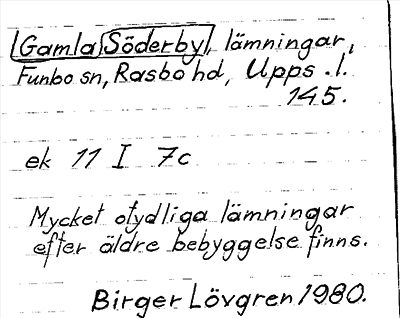 Gamla Söderby, lämningar,
Funbo sn, Rasbo hd, Upps. l.
145.
ek 11 I 7c
Mycket otydliga lämningar
efter äldre bebyggelse finns.
Birger Lövgren 1980.